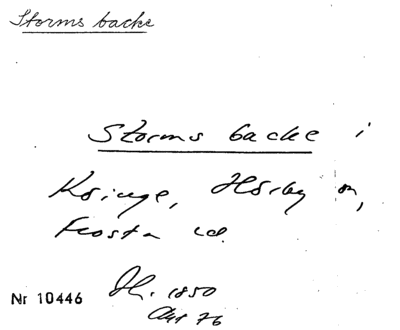 Storms backe
Storms backe i
Kringe, Hörby sn,
Frosta hd.
Nr 10446
1850
Akt 76